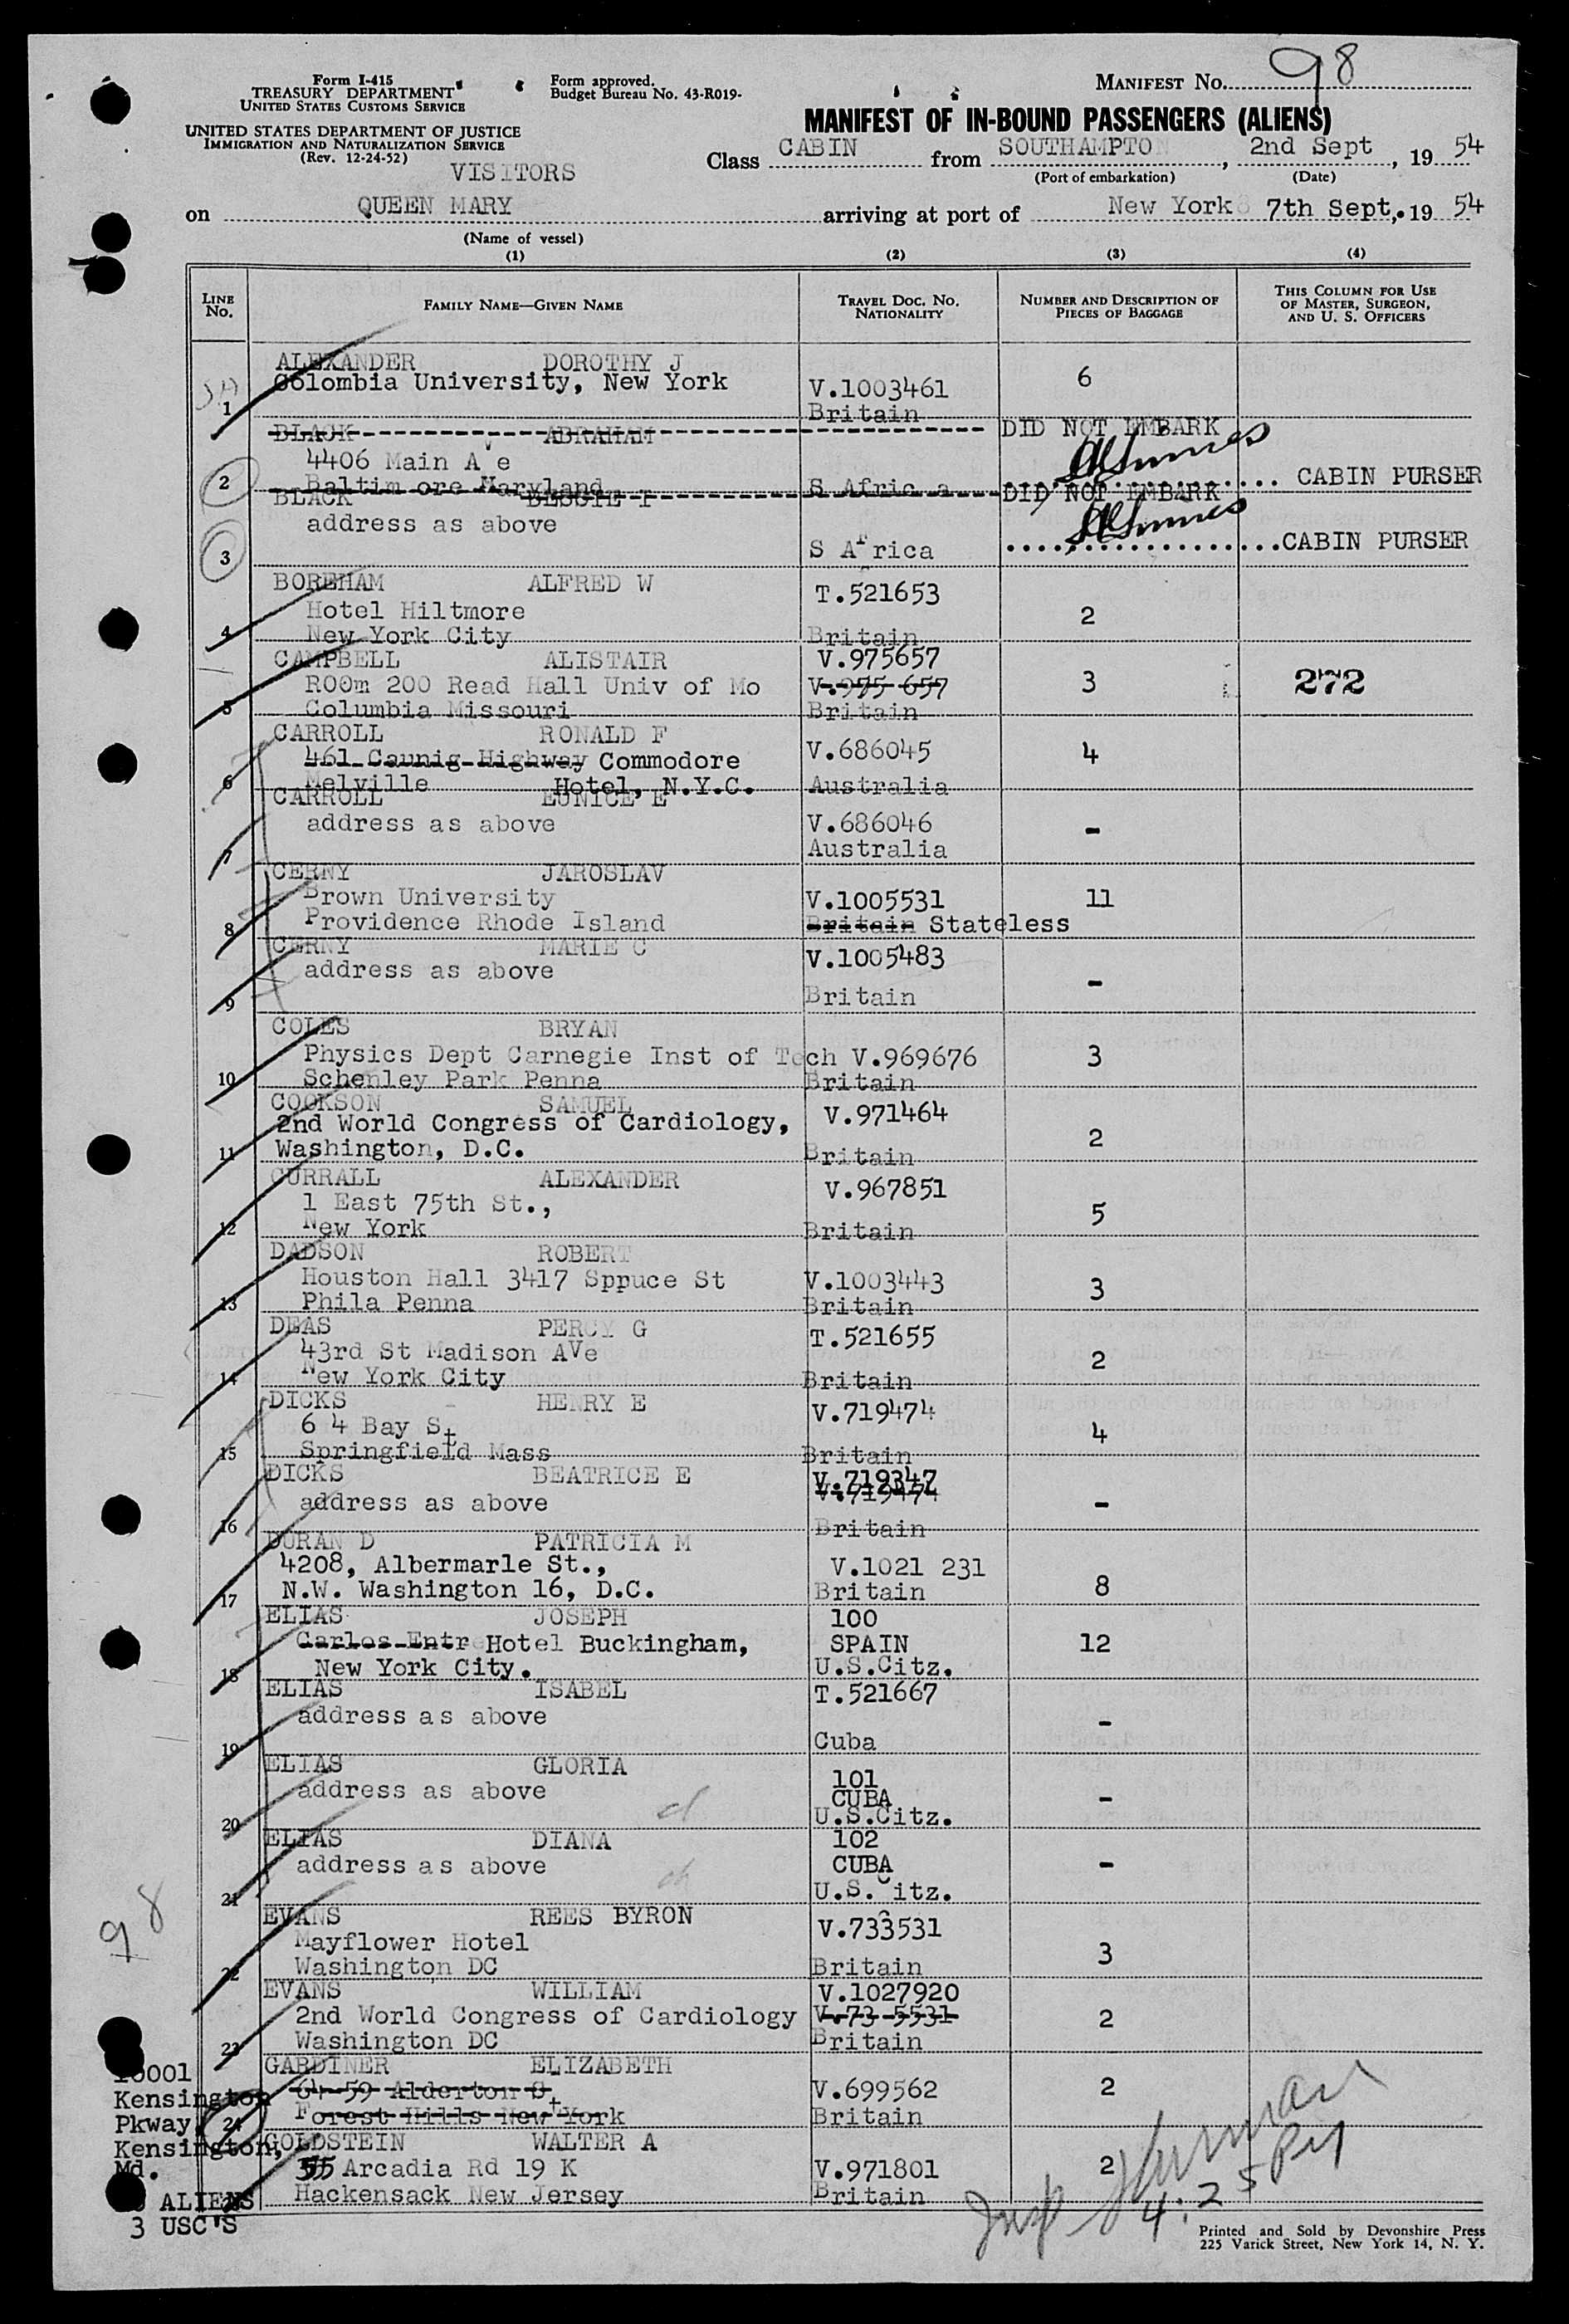 Form I-415
TREASURY DEPARTMENT
UNITED STATES CUSTOMS SERVICE
Form approved.
Budget Bureau No. 43-R019-
MANIFEST No. 98
UNITED STATES DEPARTMENT OF JUSTICE
IMMIGRATION AND NATURALIZATION SERVICE
(Rev. 12-24-52)
VISITORS
MANIFEST OF IN-BOUND PASSENGERS (ALIENS)
Class CABIN from SOUTHAMPTO , 2nd Sept , 19 54
(Port of embarkation) (Date)
on QUEEN MARY arriving at port of New York 7th Sept, 19 54
(Name of vessel)
(1) (2) (3) (4)
LINE No. FAMILY NAME—GIVEN NAME TRAVEL DOC. No. NATIONALITY NUMBER AND DESCRIPTION OF PIECES OF BAGGAGE THIS COLUMN FOR USE OF MASTER, SURGEON, AND U. S. OFFICERS
ALEXANDER DOROTHY J
Colombia University, New York V.1003461 6
1 Britain
BLACK ABRAHAM DID NOT EMBARK
4406 Main A e
2 Baltim ore Maryland S Afric a CABIN PURSER
BLACK BESSIE T DID NOT EMBARK
address as above
3 S Africa CABIN PURSER
BOREHAM ALFRED W T.521653
Hotel Hiltmore 2
4 New York City Britain
CAMPBELL ALISTAIR V.975657
ROOm 200 Read Hall Univ of Mo V.975 657 3 272
5 Columbia Missouri Britain
CARROLL RONALD F V.686045 4
461 Caunig Highway Commodore
6 Melville Hotel, N.Y.C. Australia
CARROLL EUNICE E
address as above V.686046 -
7 Australia
CERNY JAROSLAV
Brown University V.1005531 11
8 Providence Rhode Island Britain Stateless
CERNY MARIE C V.1005483
address as above -
9 Britain
COLES BRYAN
Physics Dept Carnegie Inst of Tech V.969676 3
10 Schenley Park Penna Britain
COOKSON SAMUEL V.971464
2nd World Congress of Cardiology, 2
11 Washington, D.C. Britain
CURRALL ALEXANDER V.967851
1 East 75th St., 5
12 New York Britain
DADSON ROBERT
Houston Hall 3417 Sppruce St V.1003443 3
13 Phila Penna Britain
DEAS PERCY G T.521655
43rd St Madison AVe 2
14 New York City Britain
DICKS HENRY E V.719474
6 4 Bay St 4
15 Springfield Mass Britain
DICKS BEATRICE E V.719347
address as above V.719474 -
16 Britain
DURAN D PATRICIA M
4208, Albermarle St., V.1021 231
17 N.W. Washington 16, D.C. Britain 8
ELIAS JOSEPH 100
Carlos Entr Hotel Buckingham, SPAIN 12
18 New York City. U.S.Citz.
ELIAS ISABEL T.521667
address as above -
19 Cuba
ELIAS GLORIA 101
address as above CUBA -
20 U.S.Citz.
ELIAS DIANA 102
address as above CUBA -
21 U.S.Citz.
EVANS REES BYRON V.733531
Mayflower Hotel 3
22 Washington DC Britain
98
EVANS WILLIAM V.1027920
2nd World Congress of Cardiology V.73 5531 2
23 Washington DC Britain
GARDINER ELIZABETH
64-59 Alderton St V.699562 2
24 Forest Hills New York Britain
10001
Kensington
Pkway
Kensington,
Md.
GOLDSTEIN WALTER A
Arcadia Rd 19 K V.971801 2
Hackensack New Jersey Britain
ALIENS
3 USC'S
4:25 PM
Printed and Sold by Devonshire Press
225 Varick Street, New York 14, N. Y.